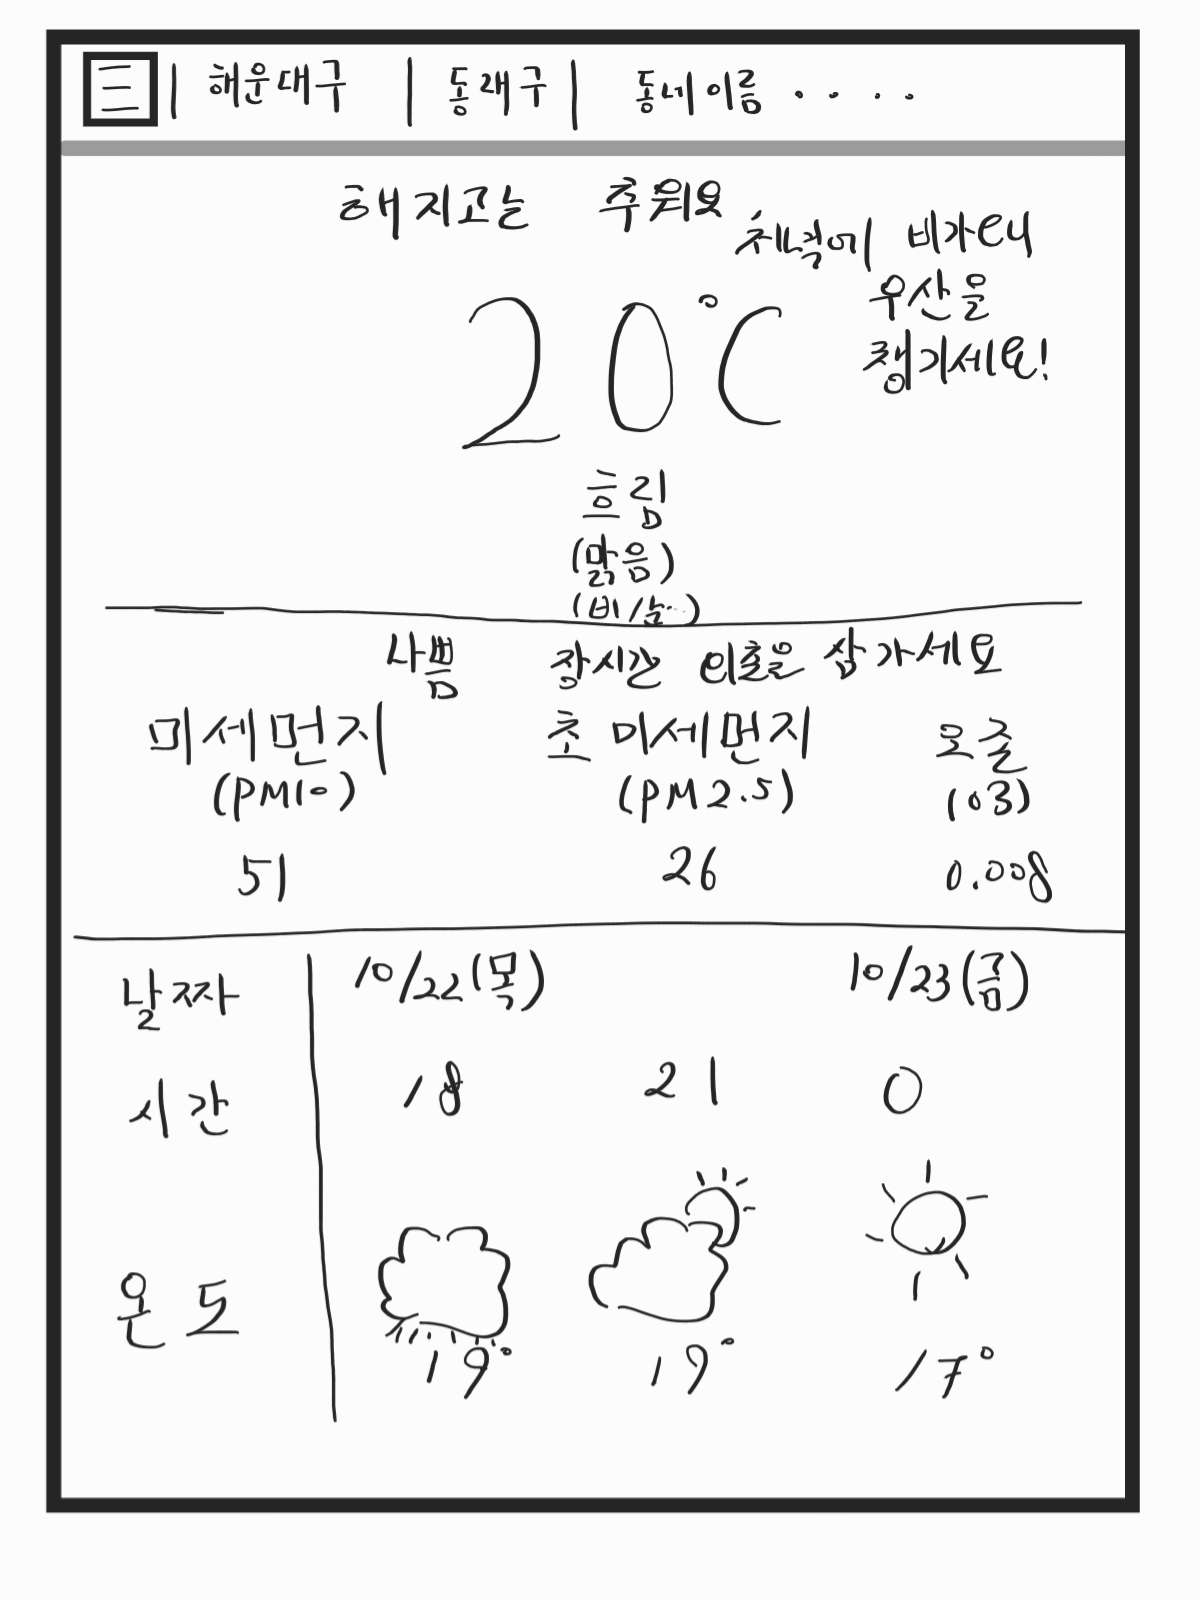 해운대구 동래구 동네이름 ....
해지고는 추워요
저녁에 비가오니
우산을
챙기세요!
20°C
흐림
(맑음)
(비/눈..)
나쁨 장시간 외출은 삼가세요
미세먼지 초미세먼지 오존
(PM10) (PM2.5) (O3)
51 26 0.008
날짜 10/22(목) 10/23(금)
시간 18 21 0
온도 19° 19° 17°